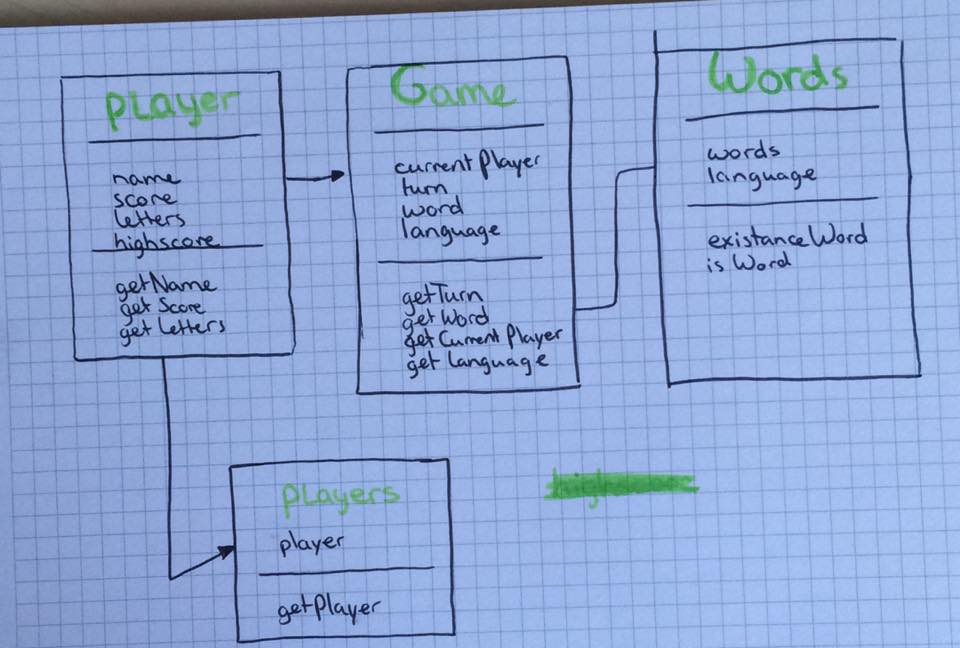 Player
name
score
letters
highscore
getName
get Score
get Letters
Game
currentPlayer
turn
word
language
getTurn
getWord
get Current Player
get Language
Words
words
language
existanceWord
is Word
Players
player
getPlayer